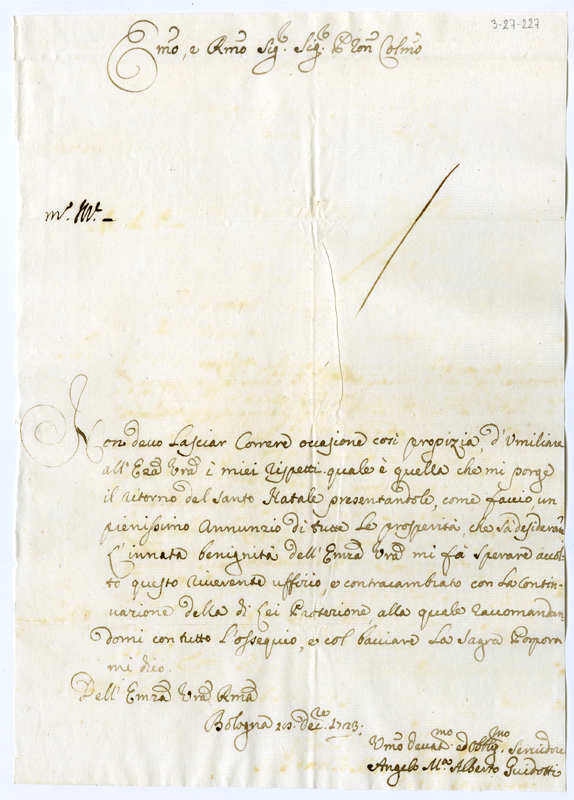 3-27-227
Emo, e Rmo Sigr. Sigr. Pron Colmo
Non devo Lasciar Correre occasione così propizia, d'Umiliare
all'Emza Vra i miei rispetti quale è quella che mi porge
il ritorno del Santo Natale presentandole, come faccio un
pienissimo Annunzio di tutte Le prosperità, che sà desiderare.
L'innata benignità dell'Emza Vra mi fà sperare accol-
to questo riverente uffizio, e contracambiato con La Contin-
uazione della di Lei Protezione, alla quale raccomandan-
domi con tutto L'ossequio, e col bacciare La Sagra Porpora
mi dico.
Dell'Emza Vra Rma
Bologna Dec.re 1723.
Umo Devmo ed Obblmo Servidore
Angelo Ma Alberto Guidotti